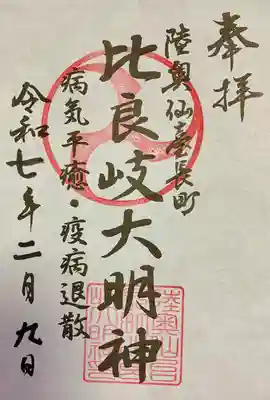 奉拝
陸奥仙臺長町
比良岐大明神
病気平癒・疫病退散
令和七年二月九日